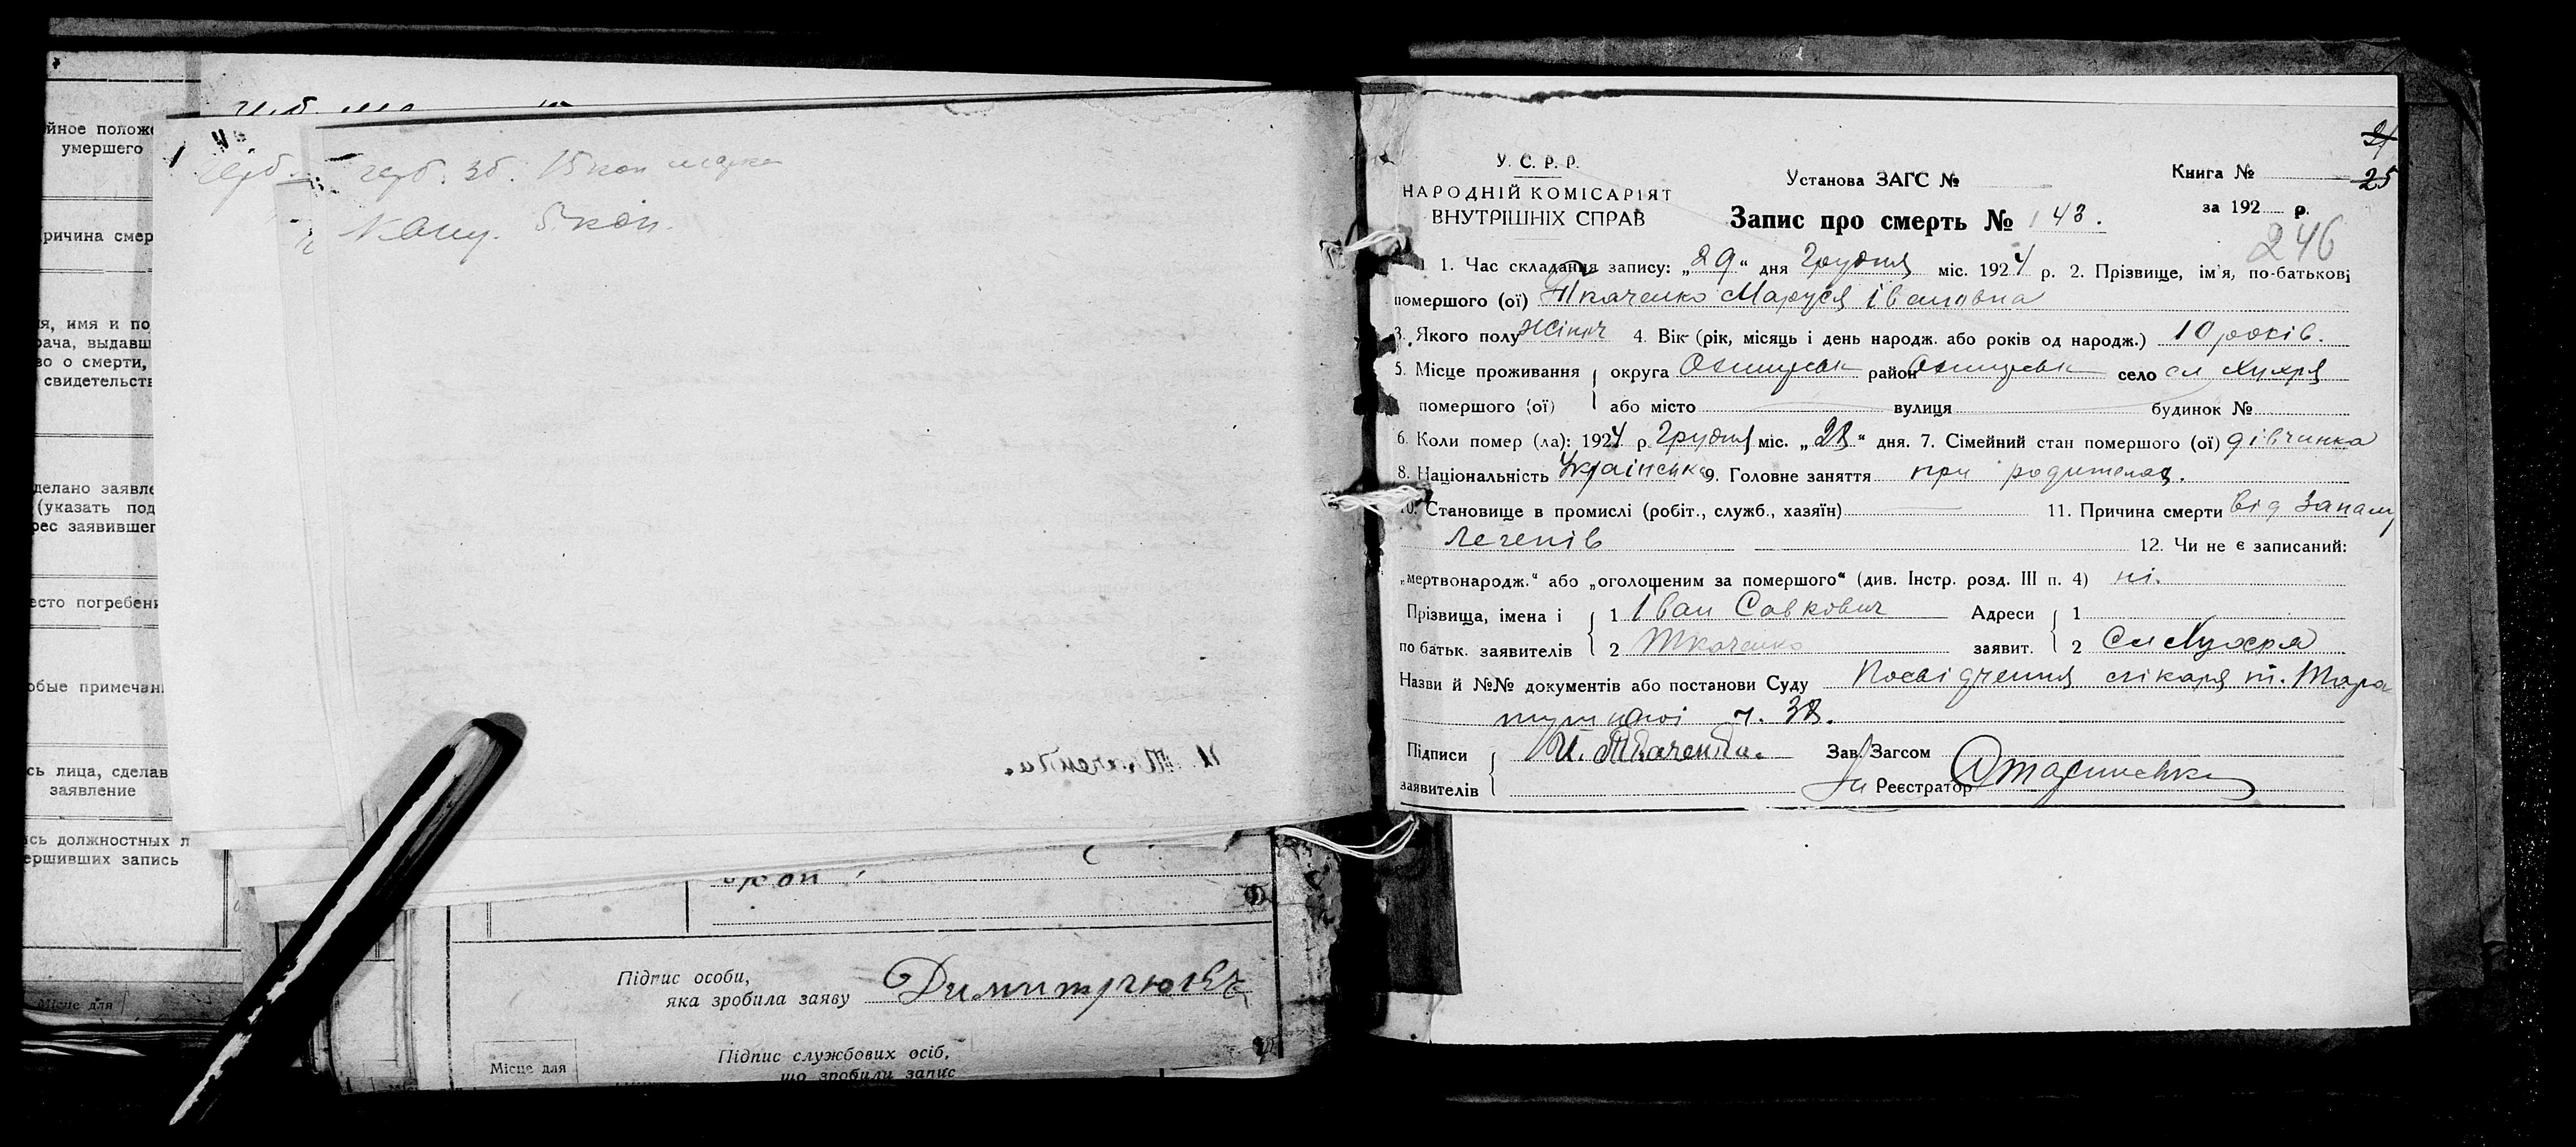 йное полож
умершего
ричина смер
я, имя и по
рача, выдавш
во о смерти,
свидетельств
делано заявле
(указать под
рес заявившег
есто погребени
обые примечан
сь лица, сделав
заявление
сь должностных л
ершивших запись
Місце для
герб. зб. 15 коп марка
Канц. 5 коп.
Підпис особи,
яка зробила заяву
Підпис службових осіб,
що зробили запис
Місце для
25
У. С. Р. Р.
НАРОДНІЙ КОМІСАРІЯТ
ВНУТРІШНІХ СПРАВ
Установа ЗАГС №
Книга №
за 192 р.
Запис про смерть № 143.
246
1. Час складання запису: „29“ дня Грудня міс. 1924 р. 2. Прізвище, ім'я, по-батькові
помершого (ої) Ткаченко Маруся Івановна
3. Якого полу жіноч 4. Вік (рік, місяць і день народж. або років од народж.) 10 років.
5. Місце проживання округа Охтирськ район Охтирськ село сл Хухря
помершого (ої) або місто вулиця будинок №
6. Коли помер (ла): 1924 р. Грудня міс. „28“ дня. 7. Сімейний стан помершого (ої) дівчинка
8. Національність Українська 9. Головне заняття при родителях.
10. Становище в промислі (робіт., служб., хазяїн) 11. Причина смерти від запалу
легенів
12. Чи не є записаний:
„мертвонародж.“ або „оголошеним за помершого“ (див. Інстр. розд. III п. 4) ні.
Прізвища, імена і 1 Іван Савкович Адреси 1
по батьк. заявителів 2 Ткаченко заявит. 2 Сл Хухря
Назви й №№ документів або постанови Суду Посвідчення лікаря т. Тара
ч. 38.
Підписи И. Ткаченко. Зав. Загсом
заявителів Реєстратор